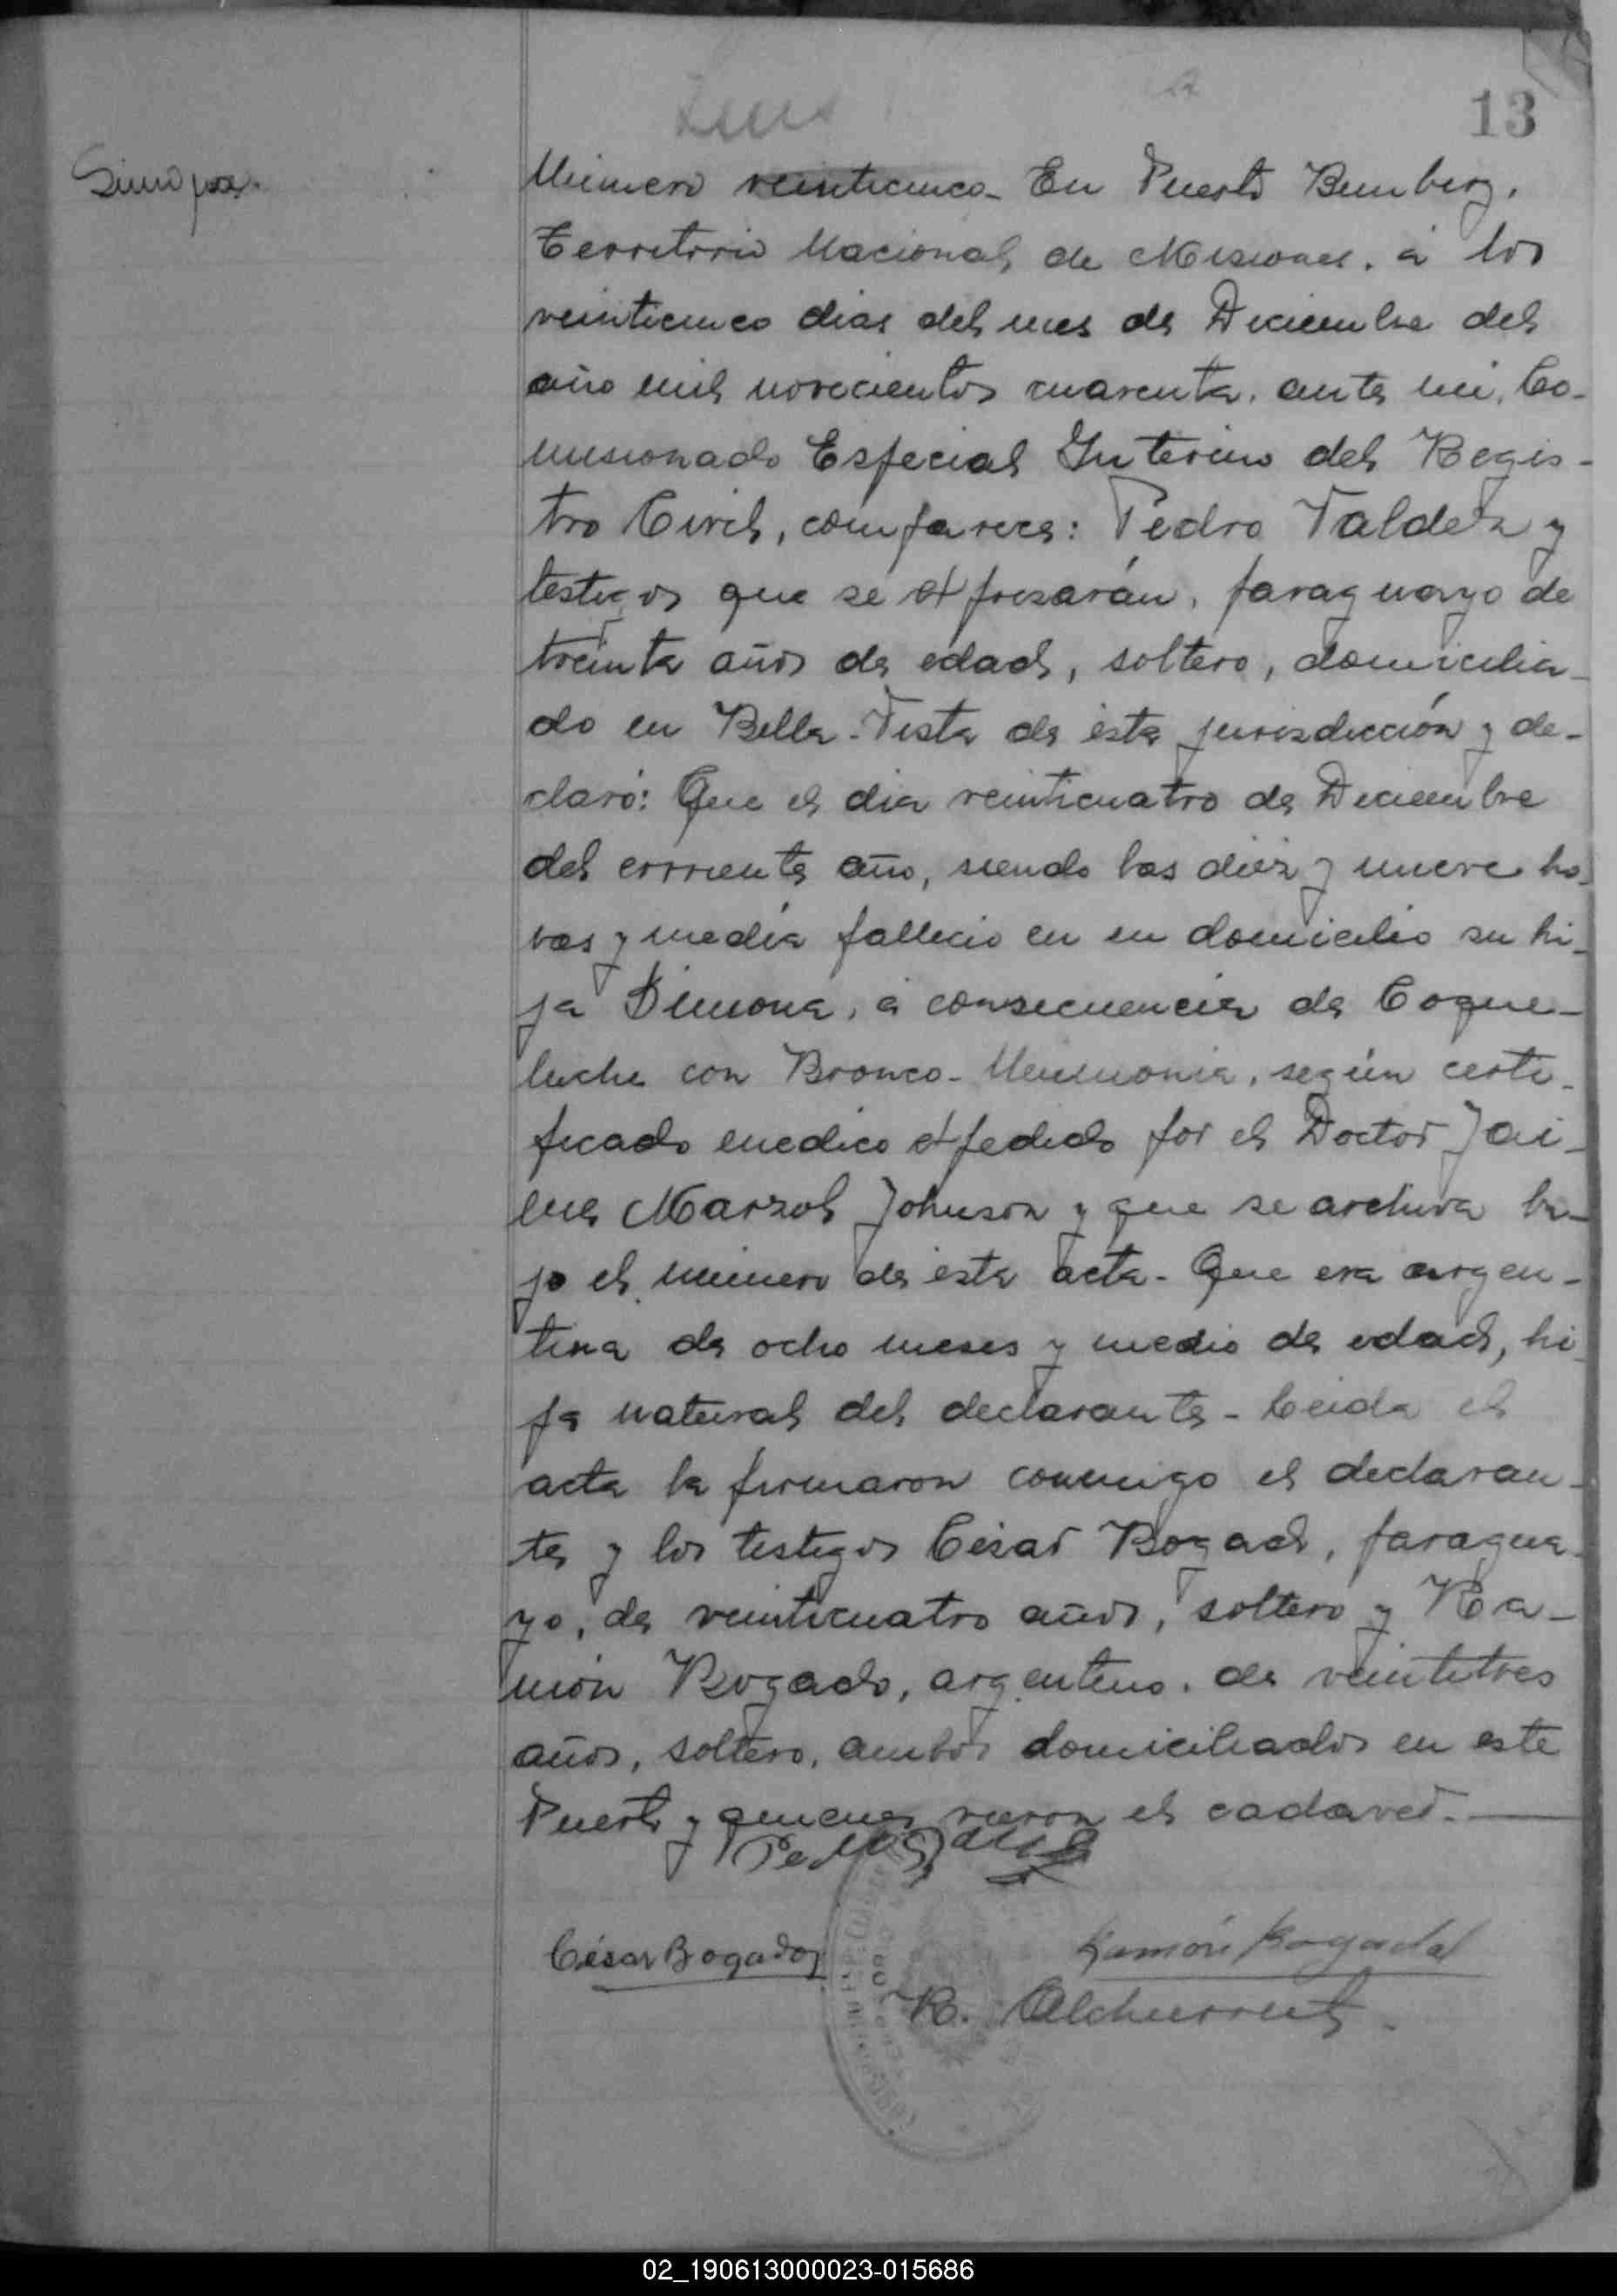 13
Número veinticinco - En Puerto Bemberg,
Territorio Nacional de Misiones, á los
veinticinco dias del mes de Diciembre del
año mil novecientos cuarenta, ante mi, Co-
misionado Especial Interino del Regis-
tro Civil, comparece: Pedro Valdez y
testigos que se expresarán, paraguayo de
treinta años de edad, soltero, domicilia-
do en Bella-Vista de ésta jurisdicción y de-
claró: Que el dia veinticuatro de Diciembre
del corriente año, siendo las diez y nueve ho-
ras y media falleció en su domicilio su hi-
ja Simona, á consecuencia de Coque-
luche con Bronco-Neumonia, según certi-
ficado médico expedido por el Doctor Jai-
me Marzol Johnson y que se archiva ba-
jo el número de ésta acta - Que era argen-
tina de ocho meses y medio de edad, hi-
ja natural del declarante - Leida el
acta la firmaron conmigo el declaran-
te y los testigos César Bogado, paragua-
yo, de veinticuatro años, soltero y Ra-
món Bogado, argentino, de veintitres
años, soltero, ambos domiciliados en este
Puerto y quienes vieron el cadaver. -
César Bogado
Ramón Bogado
02_190613000023-015686